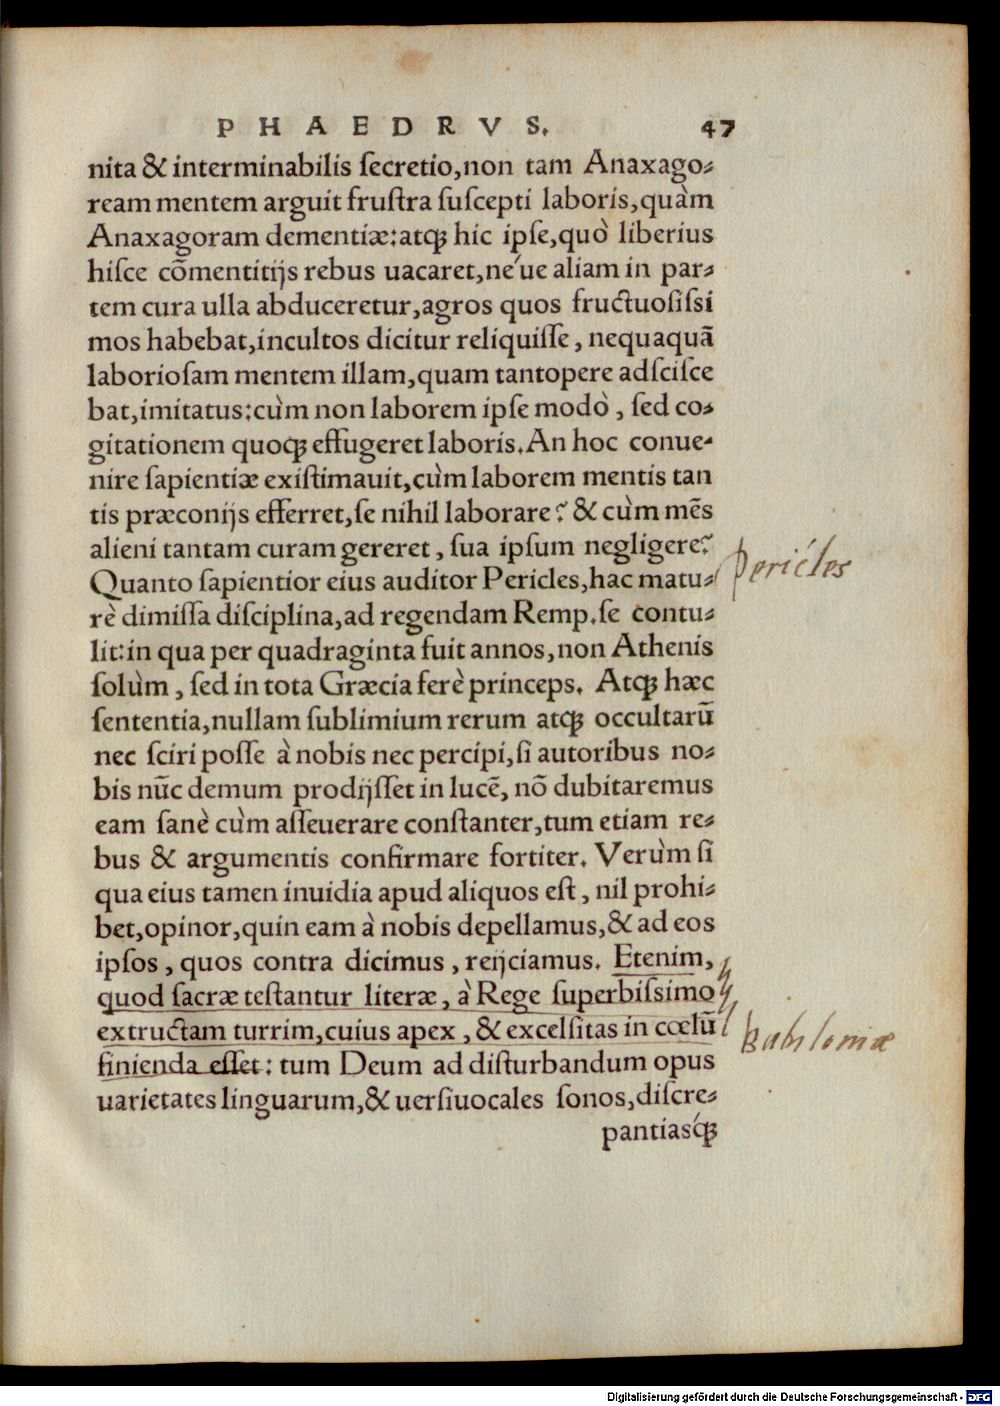 PHAEDRVS. 47
nita & interminabilis ſecretio,non tam Anaxago-
ream mentem arguit fruſtra ſuſcepti laboris,quàm
Anaxagoram dementiæ:atqꝫ hic ipſe,quò liberius
hiſce cōmentitijs rebus uacaret,ne'ue aliam in par-
tem cura ulla abduceretur,agros quos fructuoſiſsi
mos habebat,incultos dicitur reliquiſſe, nequaquā
laborioſam mentem illam,quam tantopere adſciſce
bat,imitatus:cùm non laborem ipſe modò, ſed co-
gitationem quoqꝫ effugeret laboris.An hoc conue-
nire ſapientiæ exiſtimauit,cùm laborem mentis tan
tis præconijs efferret,ſe nihil laborare? & cùm mēs
alieni tantam curam gereret, ſua ipſum negligere?
Quanto ſapientior eius auditor Pericles,hac matu-
rè dimiſſa diſciplina,ad regendam Remp.ſe contu-
lit:in qua per quadraginta fuit annos,non Athenis
ſolùm, ſed in tota Græcia ferè princeps. Atqꝫ hæc
ſententia,nullam ſublimium rerum atqꝫ occultarū
nec ſciri poſſe à nobis nec percipi,ſi autoribus no-
bis nūc demum prodijſſet in lucē, nō dubitaremus
eam ſanè cùm aſſeuerare conſtanter,tum etiam re-
bus & argumentis confirmare fortiter. Verùm ſi
qua eius tamen inuidia apud aliquos eſt, nil prohi-
bet,opinor,quin eam à nobis depellamus,& ad eos
ipſos, quos contra dicimus, reijciamus. Etenim,
quod ſacræ teſtantur literæ, à Rege ſuperbiſsimo
extructam turrim,cuius apex, & excelſitas in cœlū
finienda eſſet: tum Deum ad diſturbandum opus
uarietates linguarum,& uerſiuocales ſonos,diſcre-
pantiasq́ꝫ
Pericles
Babiloniæ
Digitalisierung gefördert durch die Deutsche Forschungsgemeinschaft - DFG